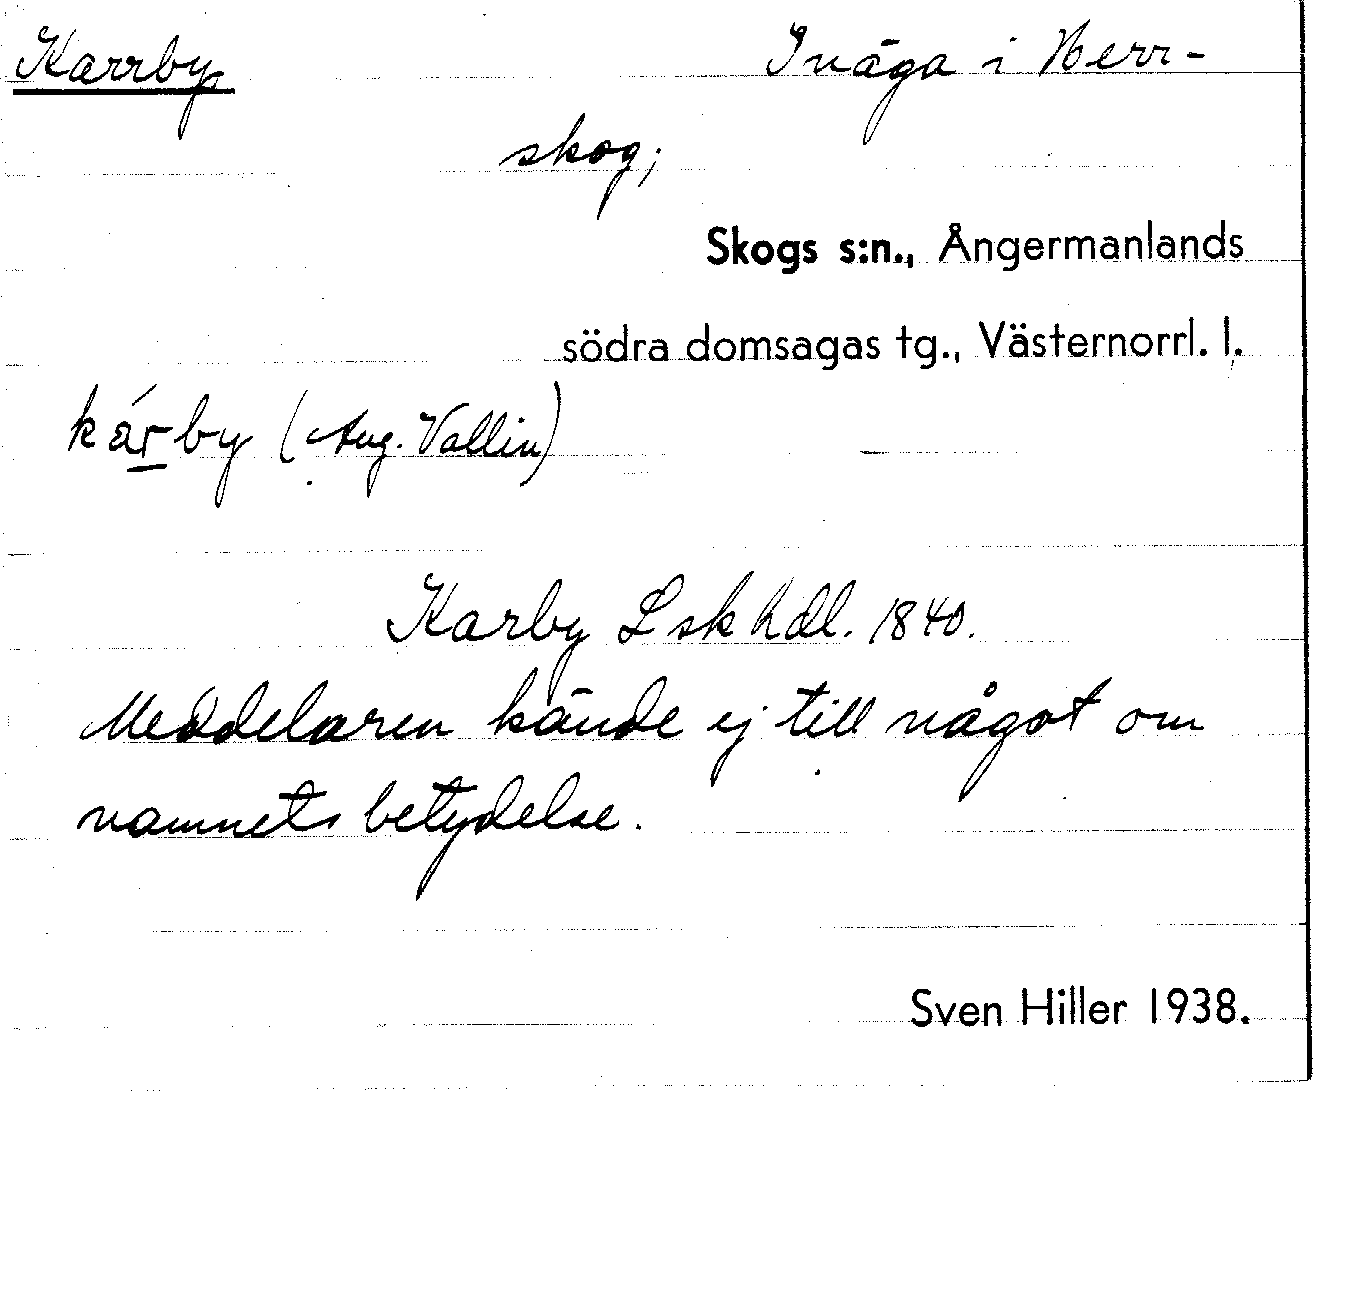 Karrby Inäga i Herr-
skog;
Skogs s:n., Ångermanlands
södra domsagas tg., Västernorrl. l.
kárby (Aug. Vallin)
Karby Lskhdl. 1840.
Meddelaren kände ej till något om
namnets betydelse.
Sven Hiller 1938.